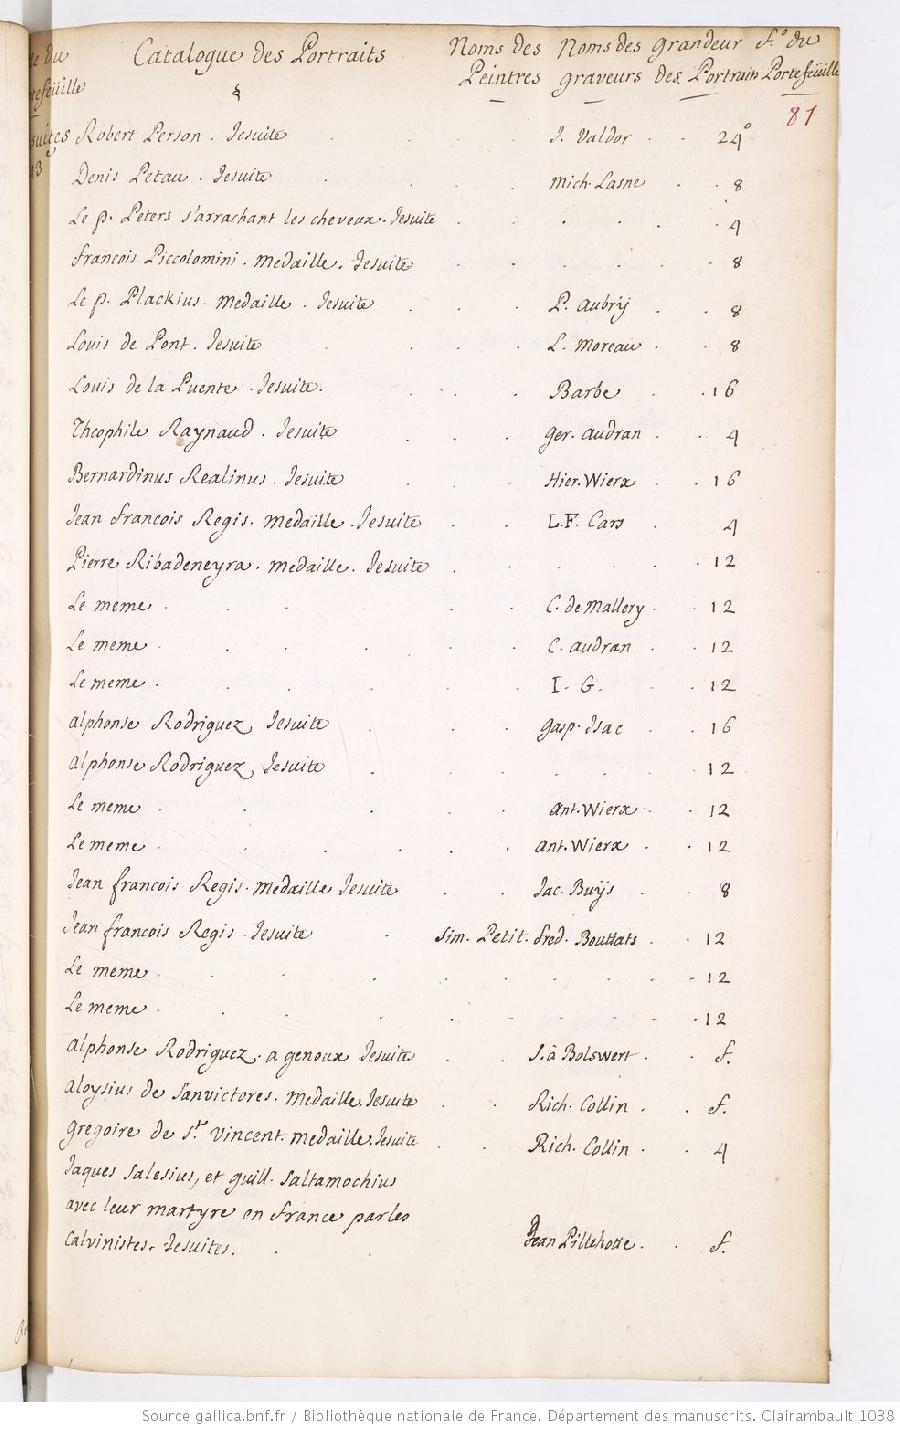 Catalogue des Portraits Noms des Noms des grandeur f.º du
Peintres graveurs des Portraits Portefeüille
81
Robert Person. Jesuite J. Valdor 24º
Denis Petau. Jesuite Mich. Lasne 8
Le p. Peters s'arrachant les cheveux. Jesuite 4
francois Piccolomini. medaille. Jesuite 8
Le p. Plackius. medaille. Jesuite P. aubrÿ 8
Louis de Pont. Jesuite L. moreau 8
Louis de la Puente. Jesuite. Barbe 16
Theophile Raynaud. Jesuite ger. audran 4
Bernardinus Realinus. Jesuite Hier. Wierx 16
Jean francois Regis. medaille. Jesuite L.F. Cars 4
Pierre Ribadeneyra. medaille. Jesuite 12
Le meme C. de Mallery 12
Le meme C. audran 12
Le meme I. G. 12
alphonse Rodriguez, Jesuite gasp. Isac 16
alphonse Rodriguez, Jesuite 12
Le meme Ant. Wierx 12
Le meme Ant. Wierx 12
Jean francois Regis. medaille Jesuite Jac. Buÿs 8
Jean francois Regis. Jesuite Sim. Petit. fred. Bouttats 12
Le meme 12
Le meme 12
alphonse Rodriguez. a genoux Jesuite S. à Bolswert f.
aloysius de Sanvictores. medaille. Jesuite Rich. Collin f.
gregoire de St. Vincent. medaille. Jesuite Rich. Collin 4
Jaques Salesius, et guill. Saltamochius
avec leur martyre en france par les
Calvinistes. Jesuites. Jean Pillehotte f.
Source gallica.bnf.fr / Bibliothèque nationale de France. Département des manuscrits. Clairambault 1038